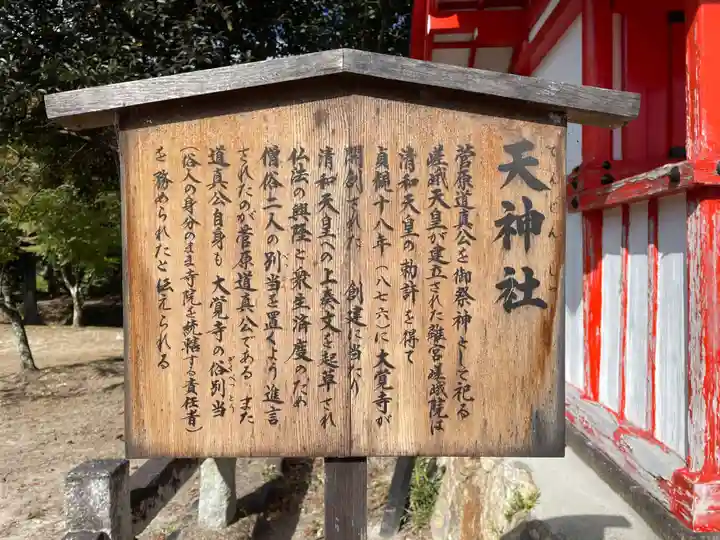 天神社
てんじんしゃ
菅原道真公を御祭神として祀る
嵯峨天皇が建立された離宮嵯峨院は
清和天皇の勅許を得て
貞観十八年(八七六)に大覚寺が
開創された 創建に当たり
清和天皇への上奏文を起草され
仏法の興隆と衆生済度のため
僧俗二人の別当を置くよう進言
されたのが菅原道真公である また
道真公自身も大覚寺の俗別当
ぞくべっとう
(俗人の身分のまま寺院を統轄する責任者)
を務められたと伝えられる